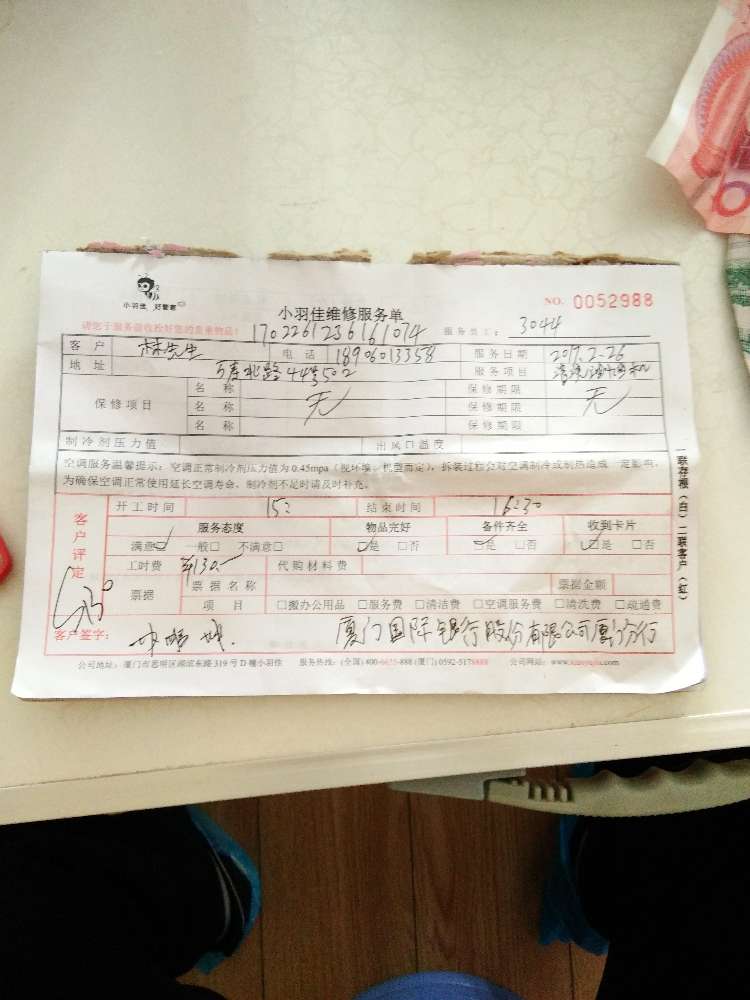 小羽佳 好管家
小羽佳维修服务单
NO. 0052988
请您于服务前收捡好您的贵重物品!
1702261236161074
服务员工: 3044
客户 林先生 电话 18906013358 服务日期 2017.2.26
地址 北路44号502 服务项目 清洗油烟机
保修项目 名称 无 保修期限 无
名称 保修期限
名称 保修期限
制冷剂压力值 出风口温度
空调服务温馨提示:空调正常制冷剂压力值为0.45mpa(视环境、机型而定),拆装过程会对空调制冷或制热造成一定影响,
为确保空调正常使用延长空调寿命、制冷剂不足时请及时补充。
客户评定
开工时间 15: 结束时间 16:30
服务态度 物品完好 备件齐全 收到卡片
满意☑ 一般□ 不满意□ ☑是 □否 ☑是 □否 ☑是 □否
工时费 ¥130.- 代购材料费
票据 票据名称 票据金额
项目 □搬办公用品 □服务费 □清洁费 □空调服务费 □清洗费 □疏通费
客户签字:
厦门国际银行股份有限公司厦门分行
公司地址:厦门市思明区湖滨东路319号D幢小羽佳 服务热线:(全国)400-6675-888 (厦门)0592-5178888 公司网站:www.xiaoyujia.com
一联存根(白)二联客户(红)